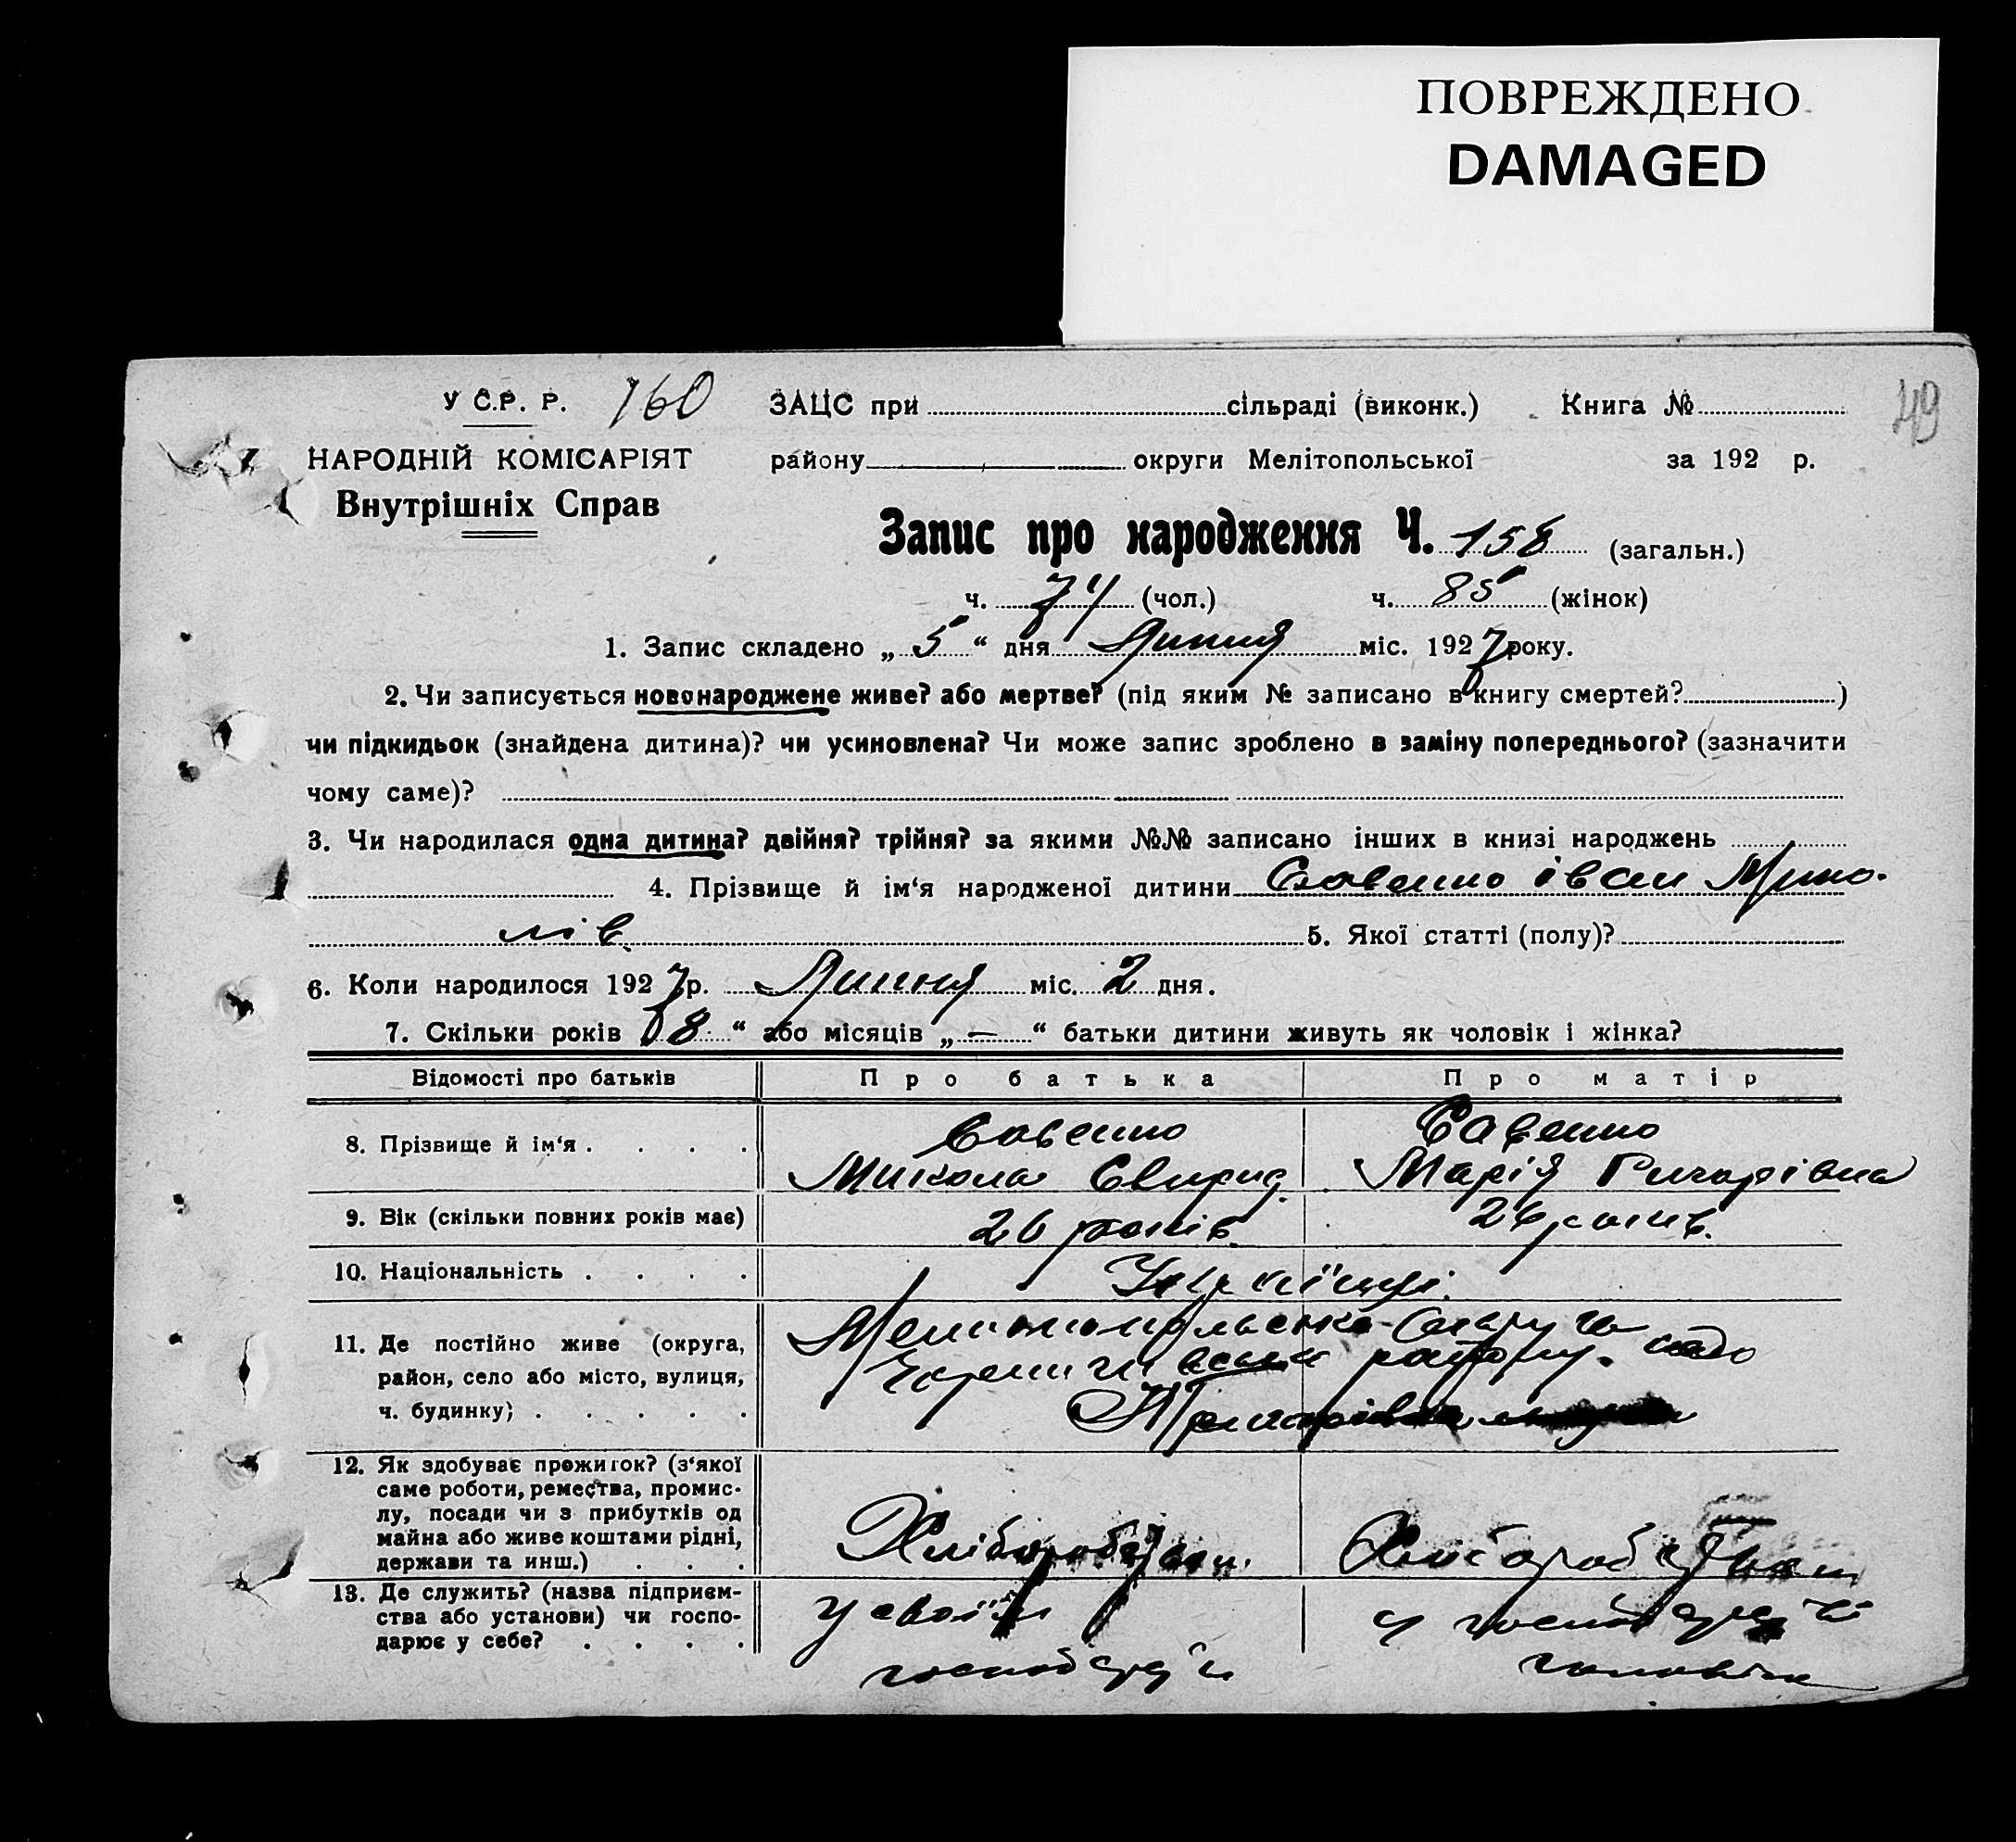 ПОВРЕЖДЕНО
DAMAGED
49
У С.Р. Р. 160 ЗАЦС при сільраді (виконк.) Книга №
НАРОДНІЙ КОМІСАРІЯТ району округи Мелітопольської за 192 р.
Внутрішніх Справ
Запис про народження Ч. 158 (загальн.)
ч. 74 (чол.) ч. 85 (жінок)
1. Запис складено „ 5 “ дня Липня міс. 1927 року.
2. Чи записується новонароджене живе? або мертве? (під яким № записано в книгу смертей? )
чи підкидьок (знайдена дитина)? чи усиновлена? Чи може запис зроблено в заміну попереднього? (зазначити
чому саме)?
3. Чи народилася одна дитина? двійня? трійня? за якими №№ записано інших в книзі народжень
4. Прізвище й ім‘я народженої дитини Савенко іван Мико-
лів. 5. Якої статті (полу)?
6. Коли народилося 1927 р. Липня міс. 2 дня.
7. Скільки років „ 8 “ або місяців „ — “ батьки дитини живуть як чоловік і жінка?
Відомості про батьків Про батька Про матір
8. Прізвище й ім‘я . . . . Савенко Савенко
Микола Свирид. Марія Григорівна
9. Вік (скільки повних років має) 26 років. 26 років.
10. Національність . . . . Українці.
11. Де постійно живе (округа, Мелітопольська Округа
район, село або місто, вулиця, району. село
ч. будинку) . . . . .
12. Як здобуває прожиток? (з‘якої
саме роботи, ремества, промис-
лу, посади чи з прибутків од
майна або живе коштами рідні, Хліборобством Хліборобством
держави та инш.) . . .
13. Де служить? (назва підприєм-
ства або установи) чи госпо- у своїм у господарстві
дарює у себе? . . . . господар чоловіка